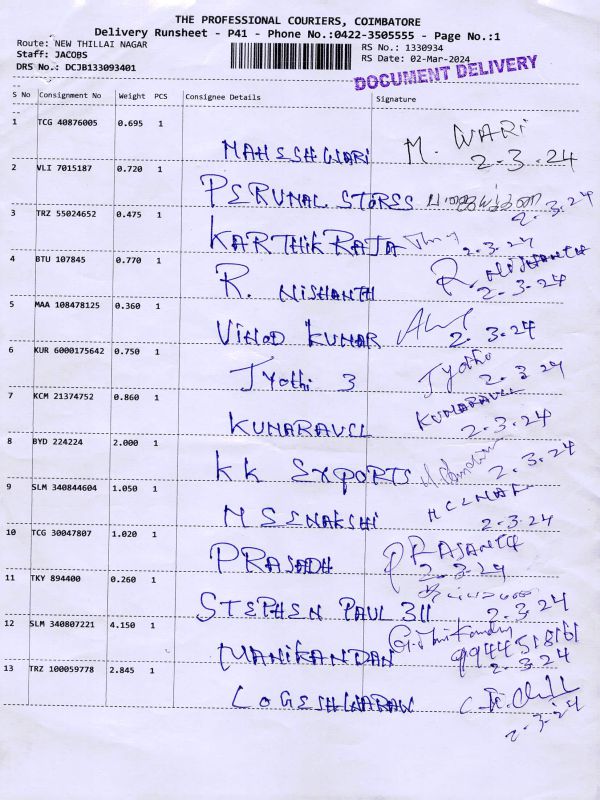 THE PROFESSIONAL COURIERS, COIMBATORE
Delivery Runsheet - P41 - Phone No.:0422-3505555 - Page No.:1
Route: NEW THILLAI NAGAR RS No.: 1330934
Staff: JACOBS RS Date: 02-Mar-2024
DRS No.: DCJB133093401
DOCUMENT DELIVERY
S No Consignment No Weight PCS Consignee Details Signature
1 TCG 40876005 0.695 1
MAHESHWARI M. WARI
2.3.24
2 VLI 7015187 0.720 1
PERUMAL STORES
2.3.24
3 TRZ 55024652 0.475 1
KARTHIK RAJA 2.3.24
4 BTU 107845 0.770 1
R. NISHANTH R. NISHANTH
2.3.24
5 MAA 108478125 0.360 1
VINOD KUMAR 2.3.24
6 KUR 6000175642 0.750 1
Jyothi 3 Jyothi
2.3.24
7 KCM 21374752 0.860 1
KUMARAVEL KUMARAVEL
2.3.24
8 BYD 224224 2.000 1
KK EXPORTS 2.3.24
9 SLM 340844604 1.050 1
MEENAKSHI
2.3.24
10 TCG 30047807 1.020 1
PRASADH PRASANTH
2.3.24
11 TKY 894400 0.260 1
STEPHEN PAUL 311 2.3.24
12 SLM 340807221 4.150 1
MANIKANDAN 9944518161
2.3.24
13 TRZ 100059778 2.845 1
LOGESHWARAN
2.3.24